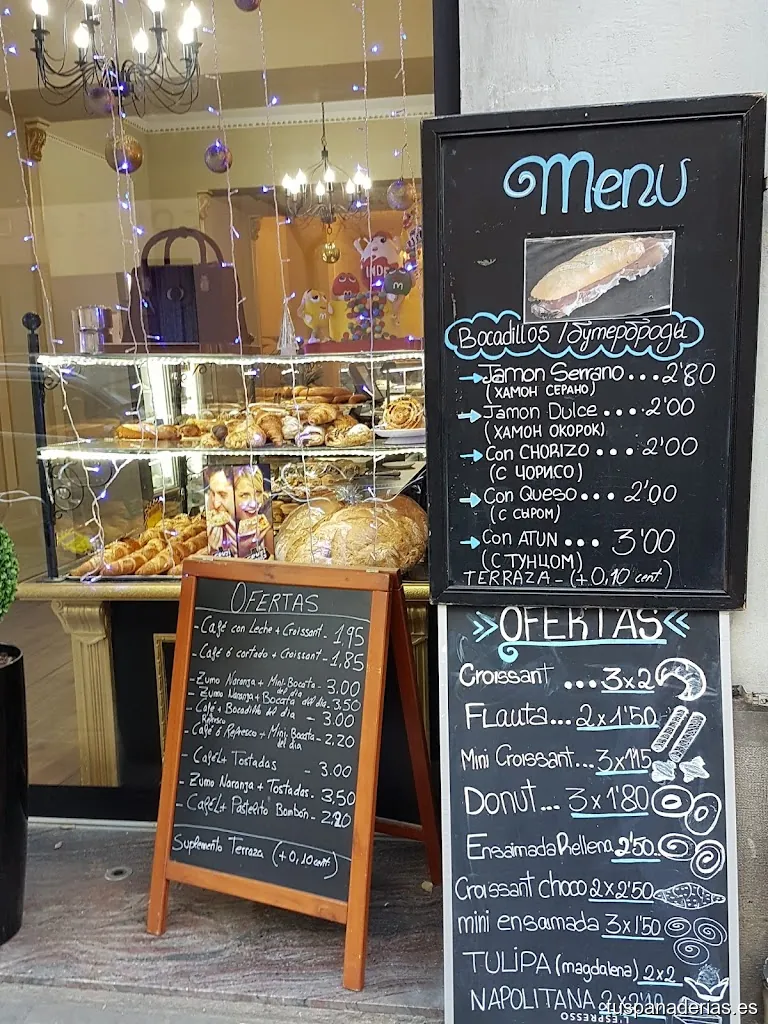 Menu
Bocadillos / бутерброды
Jamon Serrano ... 2'80
(ХАМОН СЕРАНО)
Jamon Dulce .... 2'00
(ХАМОН ОКОРОК)
Con CHORIZO ... 2'00
(С ЧОРИСО)
Con Queso ... 2'00
(С СЫРОМ)
Con ATUN ... 3'00
(С ТУНЦОМ)
TERRAZA - (+0,10 cent.)
OFERTAS
- Café con Leche + Croissant - 1,95
- Café ó cortado + Croissant - 1,85
- Zumo Naranja + Mini-Bocata del día - 3.00
- Zumo Naranja + Bocata del día - 3.50
- Café + Bocadillo del día - 3.00
Refresco
- Café ó Refresco + Mini Bocata del día - 2,20
- Café L + Tostadas - 3,00
- Zumo Naranja + Tostadas - 3,50
- Café L + Pastelito Bombón -
Suplemento Terraza (+0,10 cent.)
OFERTAS
Croissant ... 3x2
Flauta... 2x1'50
Mini Croissant... 3x1'15
Donut... 3x1'80
Ensaimada Rellena 2'50
Croissant choco 2x2'50
mini ensaimada 3x1'50
TULIPA (magdalena) 2x2
NAPOLITANA
L'ESPRESSO
tuspanaderias.es